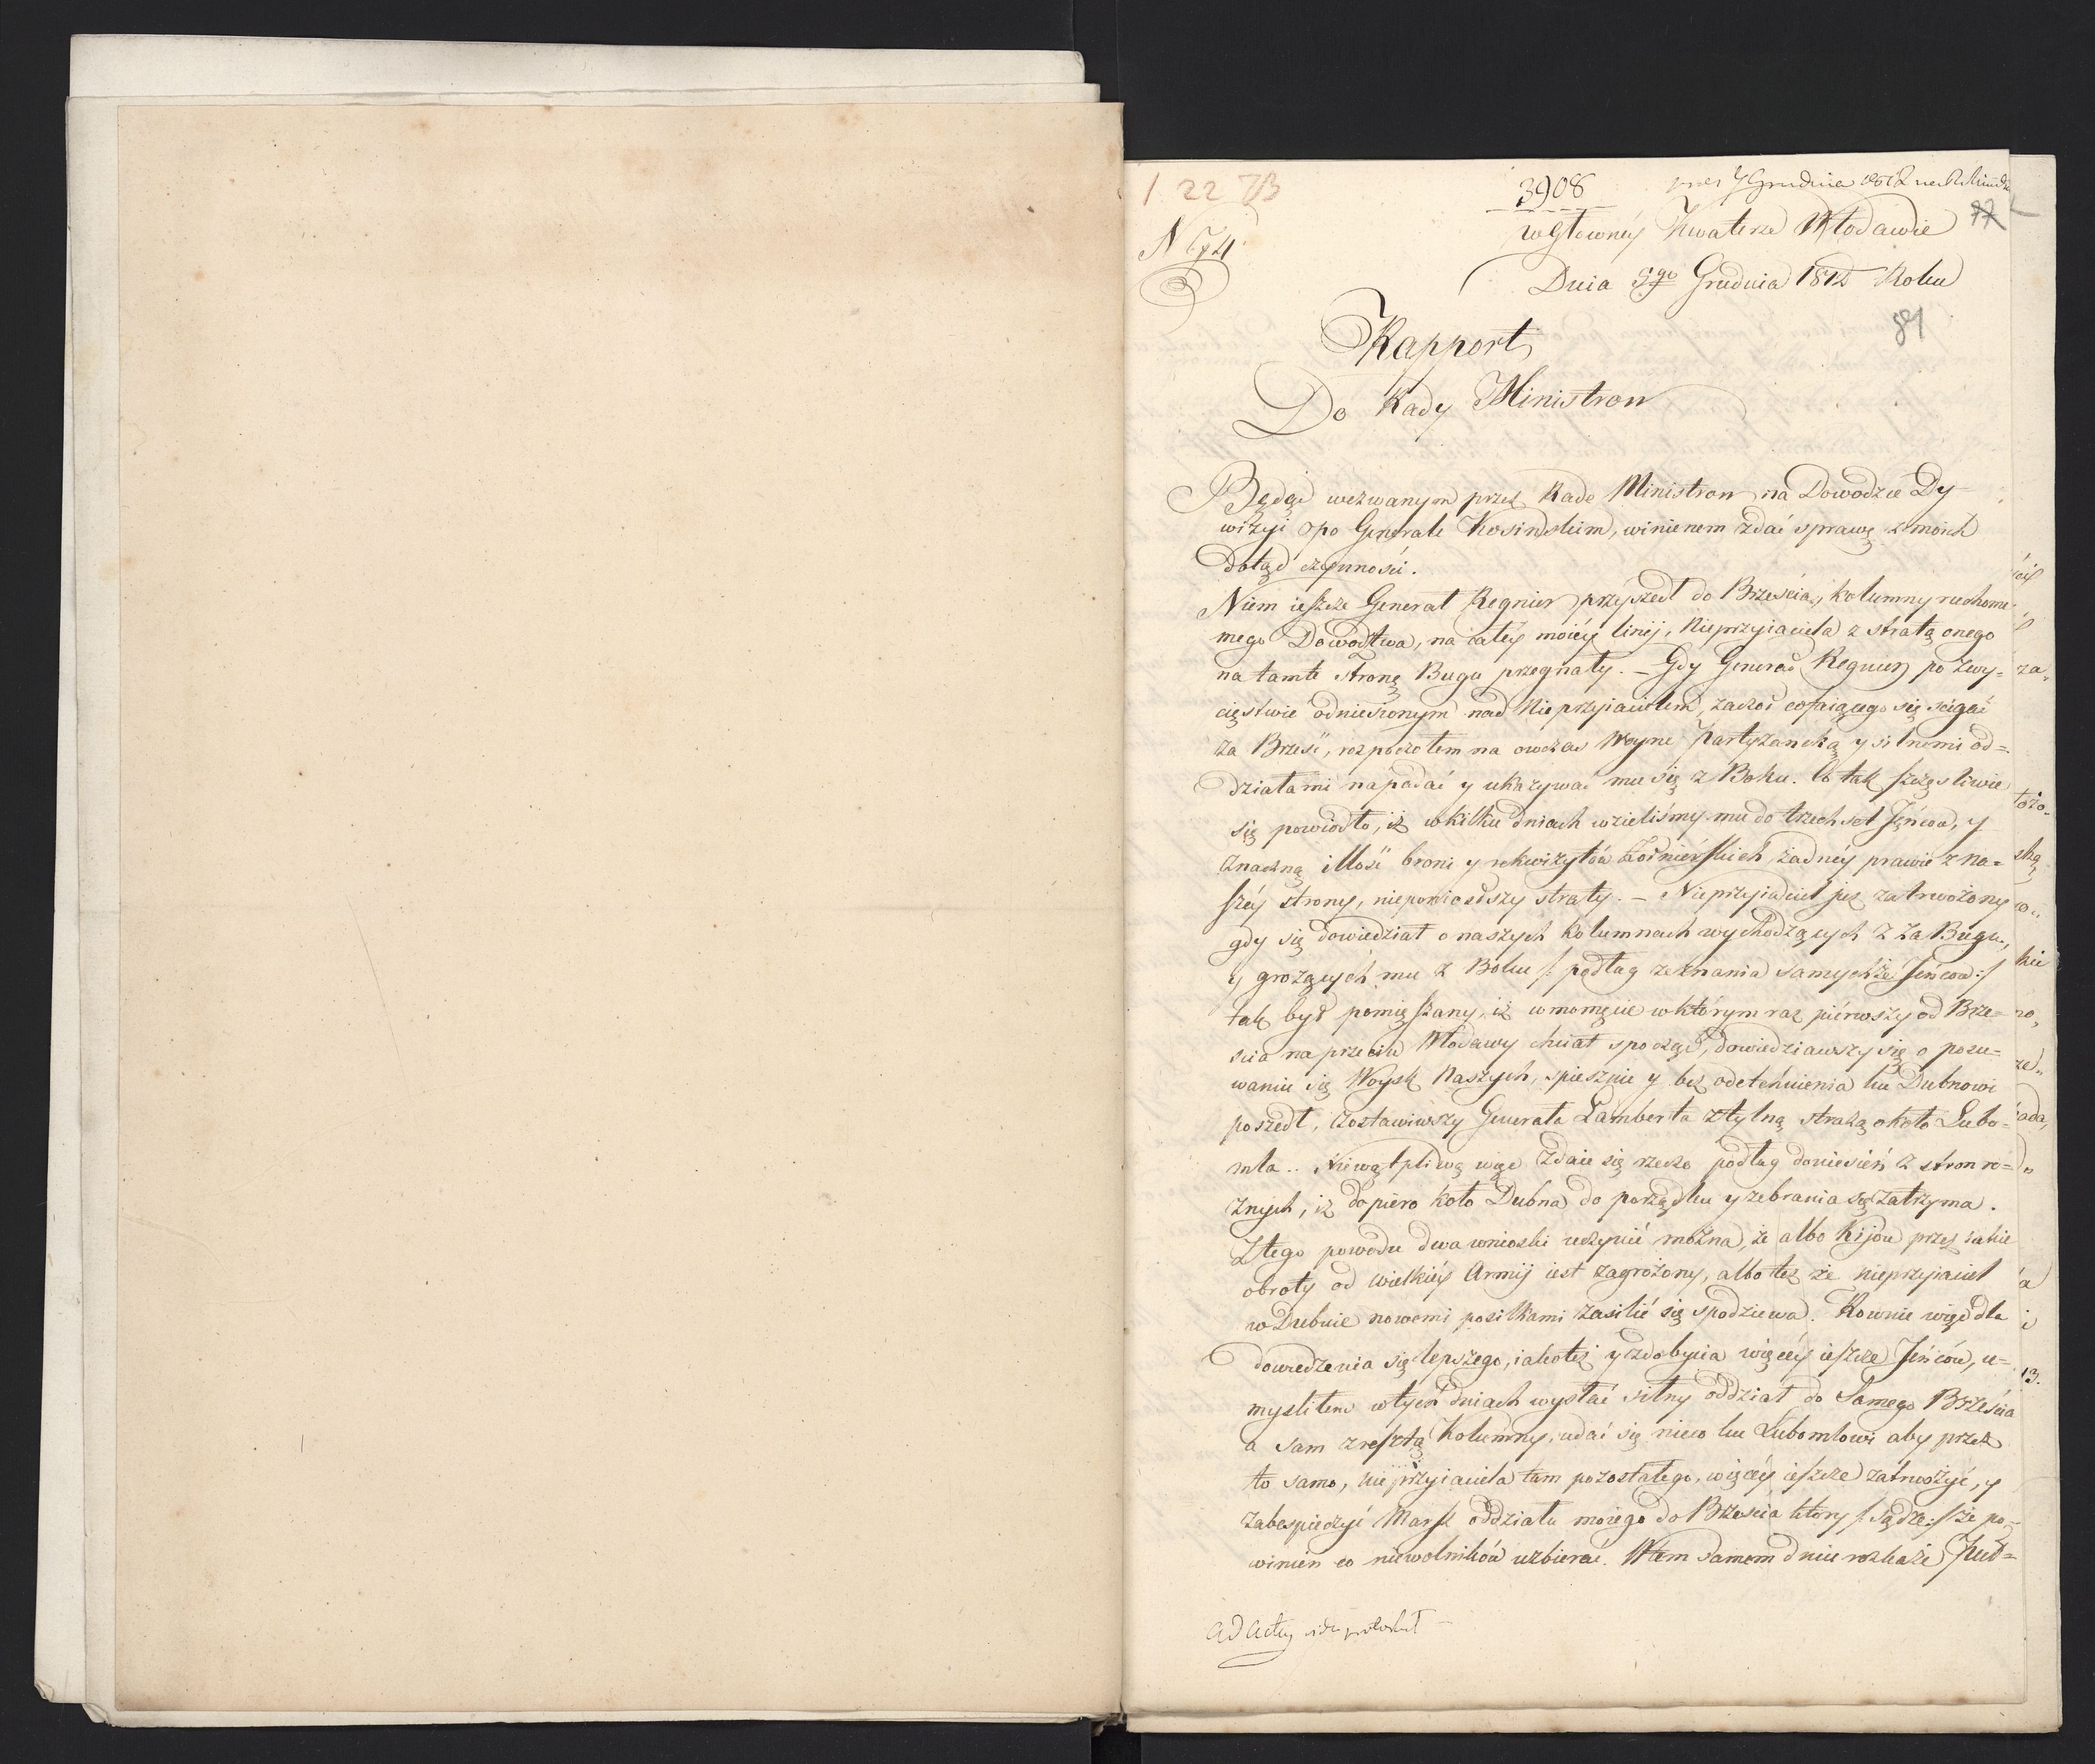 1 22 73
3908
7 Grudnia 1812
w Głowney Kwaterze Włodawie 77
N 674
Dnia 5go Grudnia 1812 Roku
81
Rapport
Do Rady Ministrow
Będąc wezwanym przez Radę Ministrow na Dowodzcę Dy-
wizyi po Generale Kosinskim, winienem zdać sprawę z moich
dotąd czynnosci.
Niem ieszcze Generał Regnier przyszedł do Brześcia, kolumny ruchome
mego Dowodztwa, na całey moiey linij, Nieprzyiaciela z stratą onego
na tamtę stronę Bugu przegnały. - Gdy Generał Regnier po zwy=
cięstwie odniesionym nad Nieprzyiacielem, zaczoł cofaiącego się scigać
za Brześć, rozpoczołem na owczas Woynę Partyzancką y silnemi od=
działami napadać y ukazywać mu się z Boku. Co tak szczęsliwie
się powiodło, iż w kilku dniach wzieliśmy mu do trzech set Jeńcow, y
znaczną illość broni y rekwizytów żołnierskich, żadney prawie z na=
szey strony, nieponiosłszy straty. - Nieprzyiaciel już zatrwożony
gdy się dowiedział o naszych kolumnach wychodzących z za Bugu,
y grożących mu z Boku /: podług zeznania samychże Jeńcow :/
tak był pomięszany, iż w momęcie w którym raz piérwszy od Brze=
scia na przeciw Włodawy chciał spocząć, dowiedziawszy się o posu=
waniu się Woysk Naszych, spiesznie y bez odetchnienia ku Dubnowi
poszedł, zostawiwszy Generała Lamberta z tylną strażą około Lubo=
mla.. Niewątpliwą więc zdaie się rzeczą podług doniesień z stron ro=
znych, iż dopiero koło Dubna do porządku y zebrania się zatrzyma.
Z tego powodu dwa wnioski uczynić można, że albo Kijow przez iakie
obroty od wielkiey Armij iest zagrożony, albo też że nieprzyiaciel
w Dubnie nowemi posiłkami zasilić się spodziewa. Rownie więc dla
dowiedzenia się lepszego, iakoteż y zdobycia więcey ieszcze Jeńców, u=
mysliłem w tych dniach wysłać silny oddział do Samego Brześcia
a sam z resztą Kolumny, udać się nieco ku Lubomlowi aby przez
to samo, nieprzyiaciela tam pozostałego, więcey ieszcze zatrwożyć, y
zabespieczyć Marsz oddziału moiego do Brzescia który /: sądzę :/ że po=
winien co niewolników uzbierać. W tem samem dniu rozkażę Puł=
ad acta